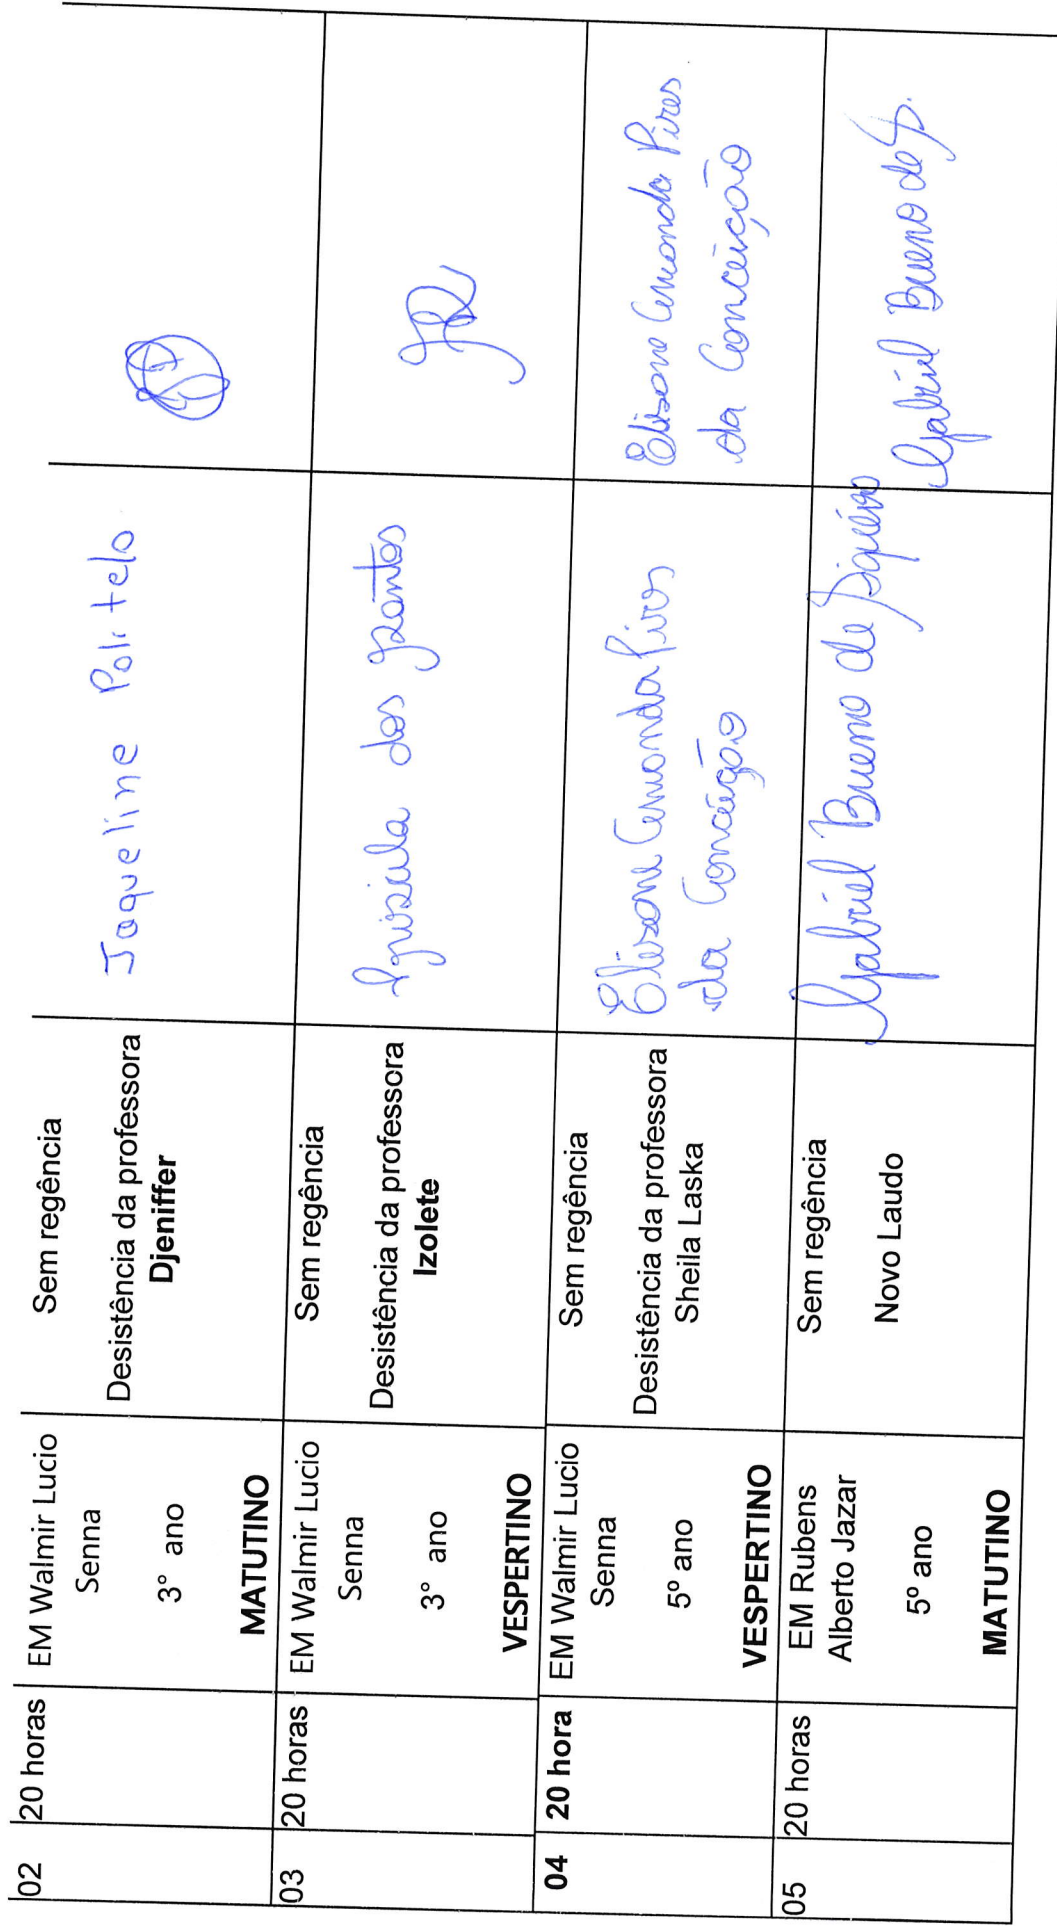 02
20 horas
EM Walmir Lucio
Senna
3° ano
MATUTINO
Sem regência
Desistência da professora
Djeniffer
Jaqueline Politelo
03
20 horas
EM Walmir Lucio
Senna
3° ano
VESPERTINO
Sem regência
Desistência da professora
Izolete
dos Santos
04
20 hora
EM Walmir Lucio
Senna
5º ano
VESPERTINO
Sem regência
Desistência da professora
Sheila Laska
Elisane Amanda Pires
da Conceição
Elisane Amanda Pires
da Conceição
05
20 horas
EM Rubens
Alberto Jazar
5º ano
MATUTINO
Sem regência
Novo Laudo
Gabriel Bueno de Siqueira
Gabriel Bueno de S.